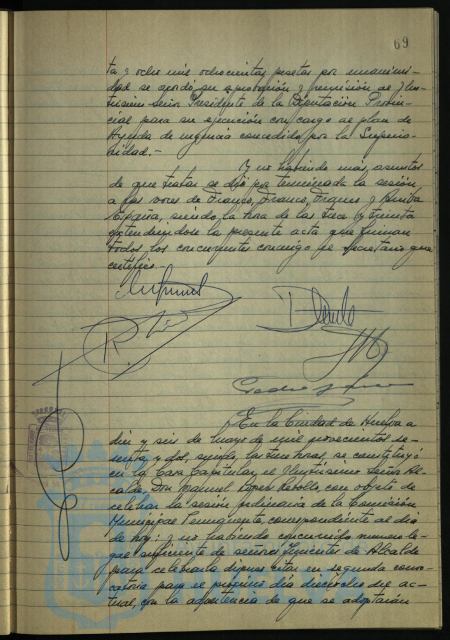 69
ta y ocho mil ochocientas pesetas por unanimi-
dad se acordó su aprobación y remisión al Ilus-
trísimo señor Presidente de la Diputación Provin-
cial para su ejecución con cargo al plan de
Ayuda de urgencia concedido por la Superio-
ridad.-
Y no habiendo más asuntos
de que tratar se dió por terminada la sesión
a las voces de Franco, Franco, Franco y Arriba
España, siendo la hora de las trece y treinta
extendiendose la presente acta que firman
todos los concurrentes conmigo el secretario que
certifico.-
En la Ciudad de Huelva a
diez y seis de mayo de mil novecientos se-
senta y dos, siendo las once horas, se constituyó
en la Casa Capitular, el Ilustrísimo Señor Al-
calde Don Manuel López Rebollo, con objeto de
celebrar la sesión ordinaria de la Comisión
Municipal Permanente, correspondiente al día
de hoy: y no habiendo concurrido número le-
gal suficiente de señores Tenientes de Alcalde
para celebrarla dispuso citar en segunda convo-
catoria para el próximo día dieciocho del ac-
tual, con la advertencia de que se adoptarán